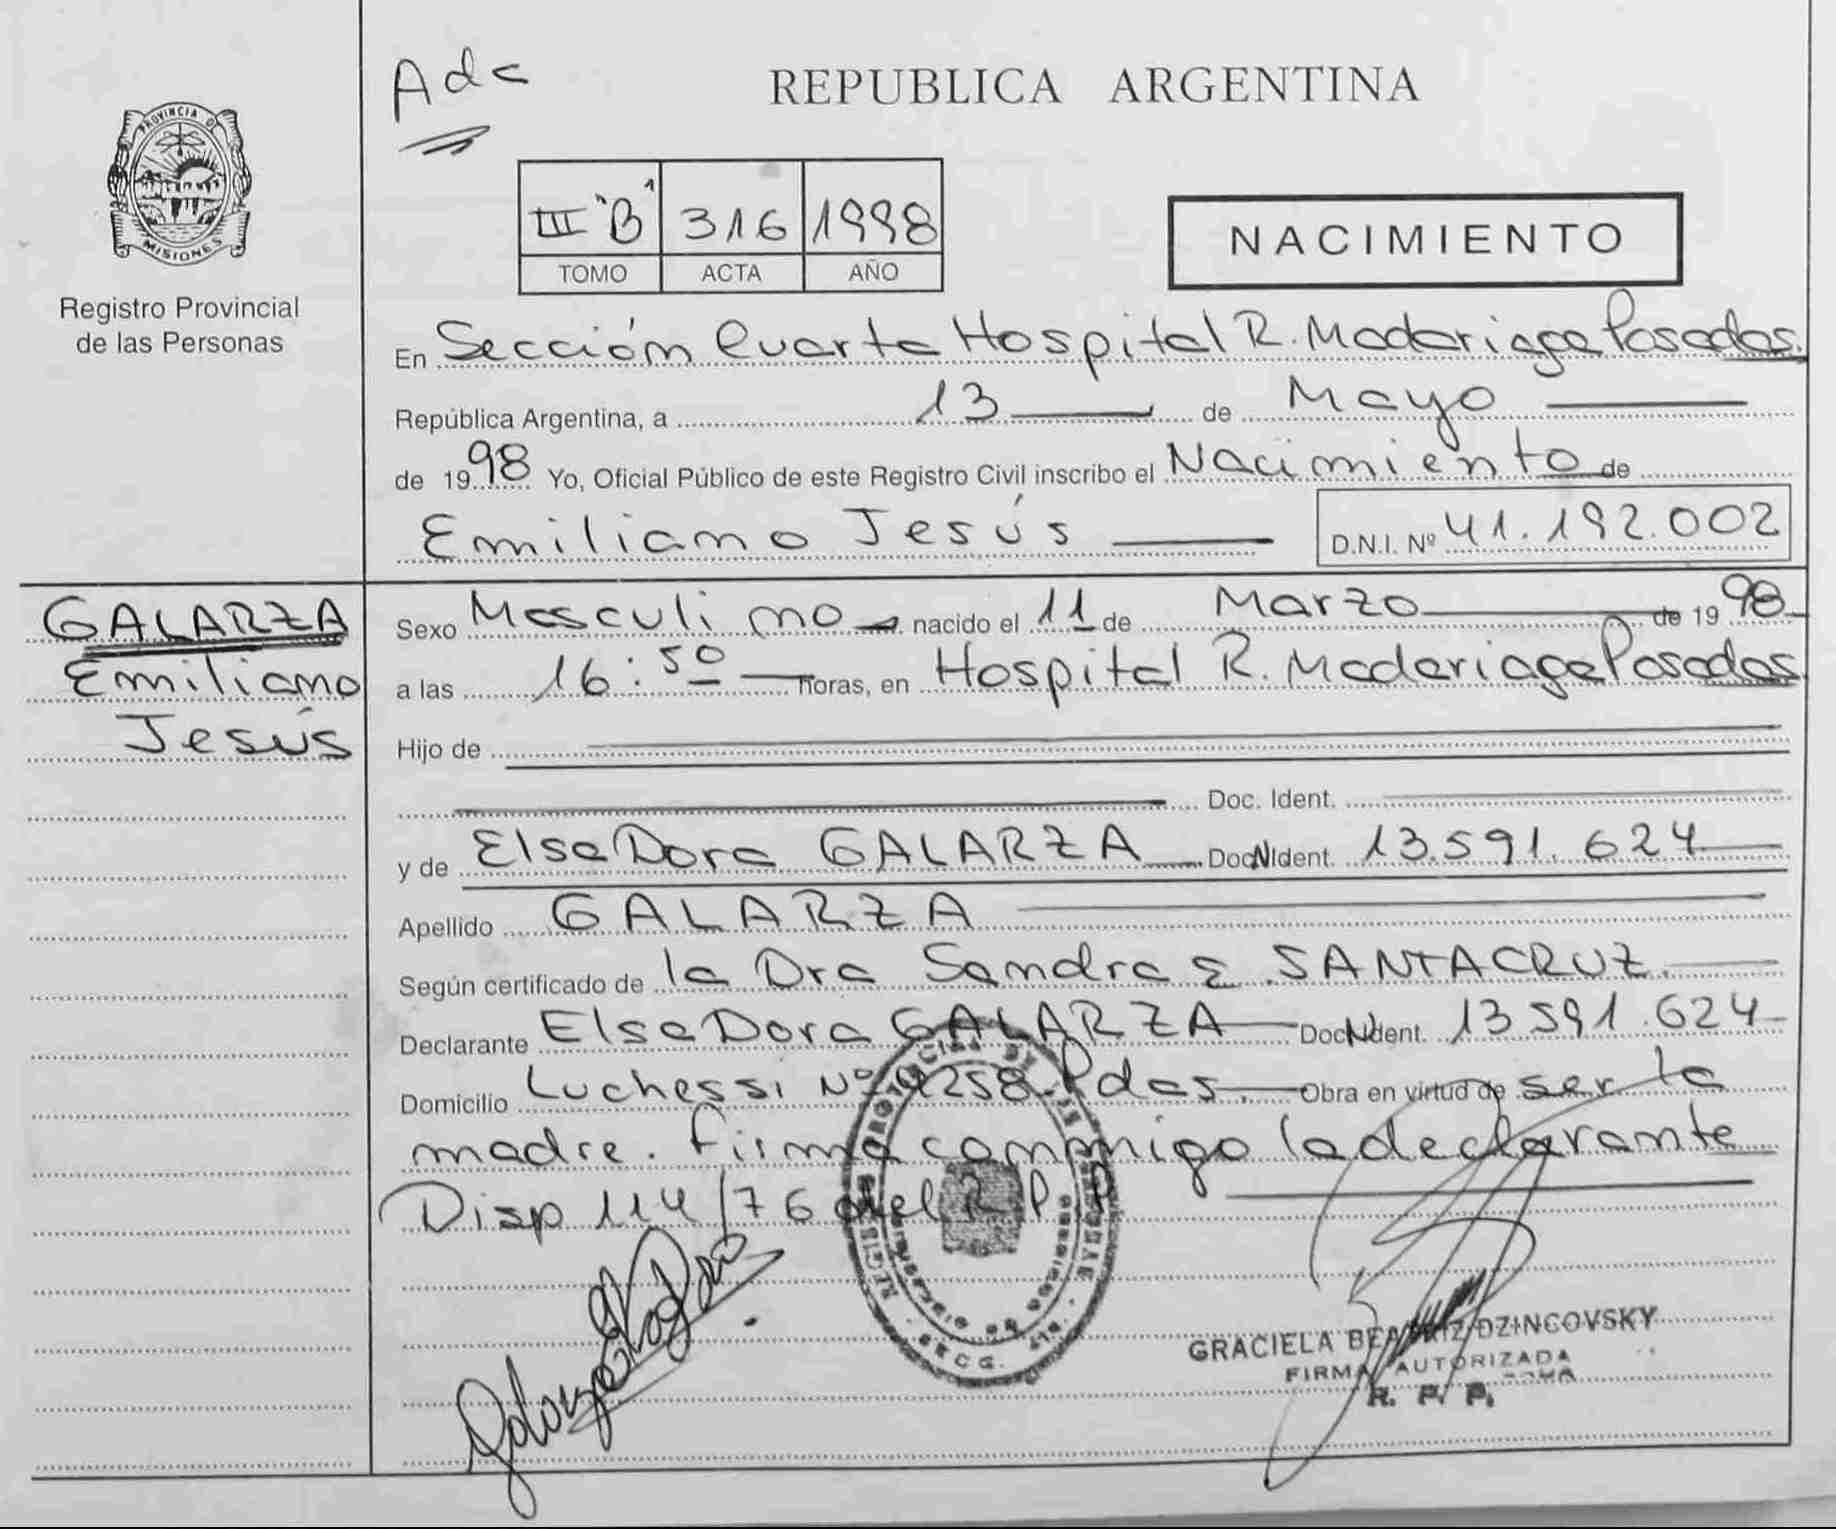 Adc
REPUBLICA ARGENTINA
PROVINCIA DE
MISIONES
Registro Provincial
de las Personas
III "B" 316 1998
TOMO ACTA AÑO
NACIMIENTO
En Sección Cuarta Hospital R. Madariaga Posadas.
República Argentina, a 13 de Mayo
de 1998 Yo, Oficial Público de este Registro Civil inscribo el Nacimiento de
Emiliano Jesús
D.N.I. Nº 41.192.002
GALARZA
Emiliano
Jesús
Sexo Masculino nacido el 11 de Marzo de 1998
a las 16:50 horas, en Hospital R. Madariaga Posadas
Hijo de
Doc. Ident.
y de Elsa Dora GALARZA Doc. N Ident. 13.591.624
Apellido GALARZA
Según certificado de la Dra Sandra E. SANTACRUZ.
Declarante Elsa Dora GALARZA Doc. N Ident. 13.591.624
Domicilio Luchessi Nº 4258 Pdas. Obra en virtud de ser la
madre. Firma conmigo la declarante
Disp 114/76 del R.P.P
GRACIELA BEATRIZ DZINCOVSKY
FIRMA AUTORIZADA
R. P. P.